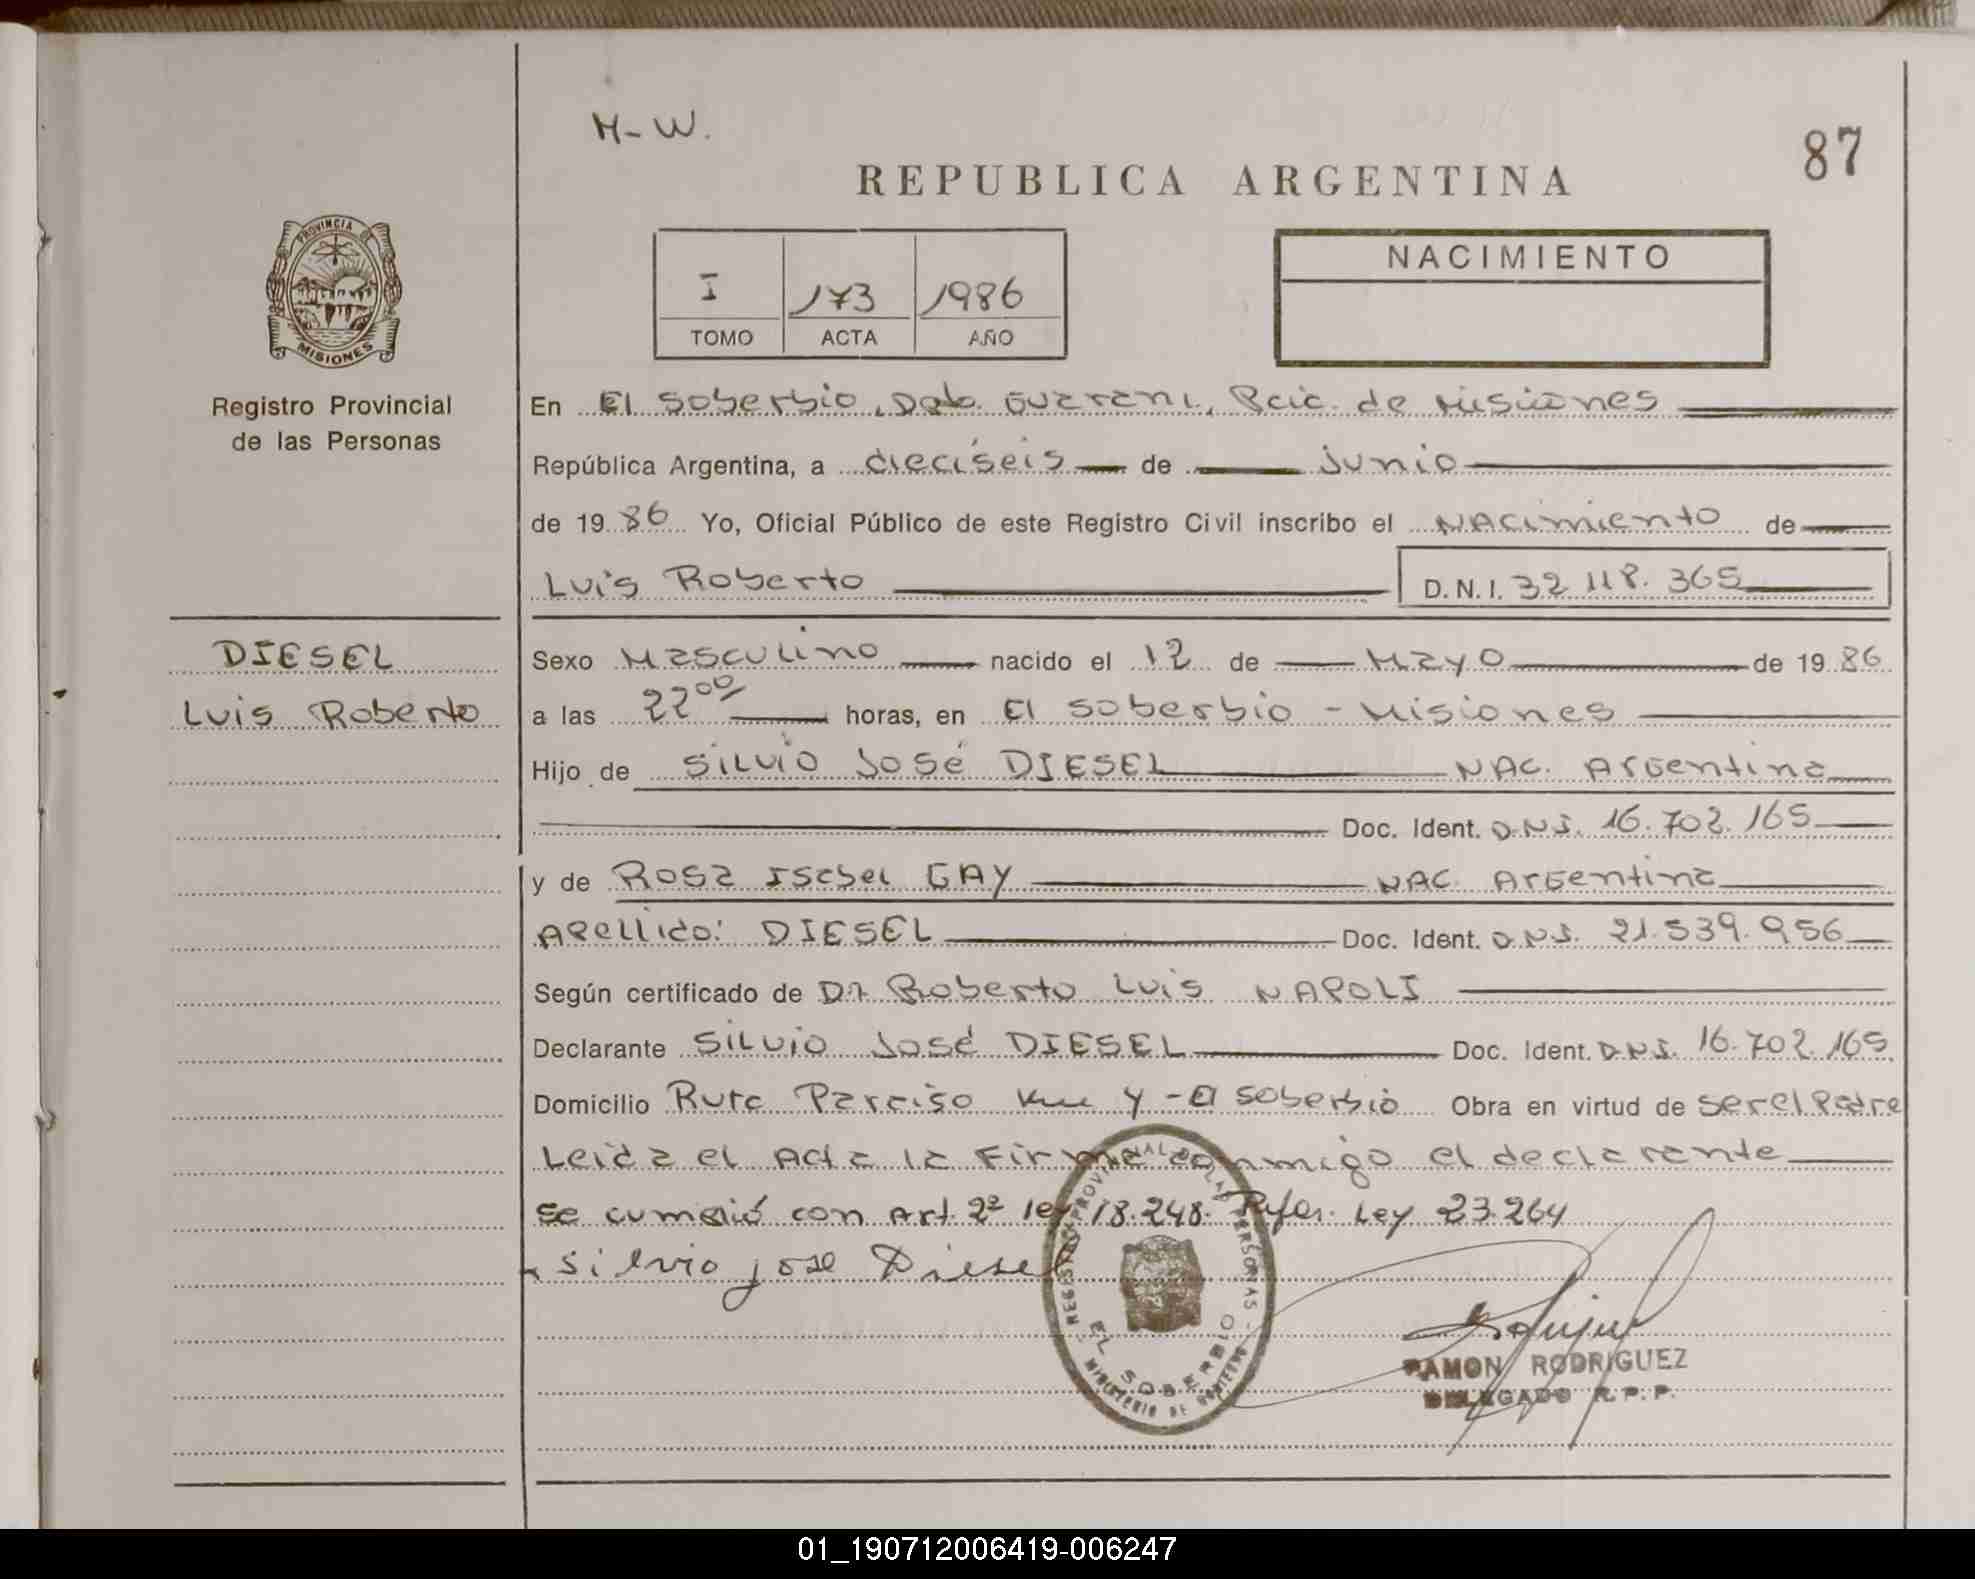 H-W.
87
REPUBLICA ARGENTINA
PROVINCIA DE
MISIONES
I 173 1986
TOMO ACTA AÑO
NACIMIENTO
Registro Provincial
de las Personas
En El Soberbio, Dpto. Guarani, Pcia. de Misiones
República Argentina, a dieciséis de junio
de 1986 Yo, Oficial Público de este Registro Civil inscribo el NACimiento de
Luis Roberto D.N.I. 32 118.365
DIESEL
Luis Roberto
Sexo Masculino nacido el 12 de Mayo de 1986
a las 22⁰⁰ horas, en El Soberbio - Misiones
Hijo de Silvio José DIESEL NAC. Argentina
Doc. Ident. D.N.I. 16.702.165
y de Rosa Isabel GAY NAC. Argentina
Apellido: DIESEL Doc. Ident. D.N.I. 21.539.956
Según certificado de Dr Roberto Luis NAPOLI
Declarante Silvio José DIESEL Doc. Ident. D.N.I. 16.702.165
Domicilio Ruta Paraiso Km Y - El Soberbio Obra en virtud de ser el Padre
Leida el Acta la Firma conmigo el declarante
se cumplió con Art. 2º ley 18.248. Refor. Ley 23.264
Silvio jose Diesel
REGISTRO PROVINCIAL DE LAS PERSONAS
EL SOBERBIO
MINISTERIO DE GOBIERNO
RAMON RODRIGUEZ
DELEGADO R.P.P.
01_190712006419-006247